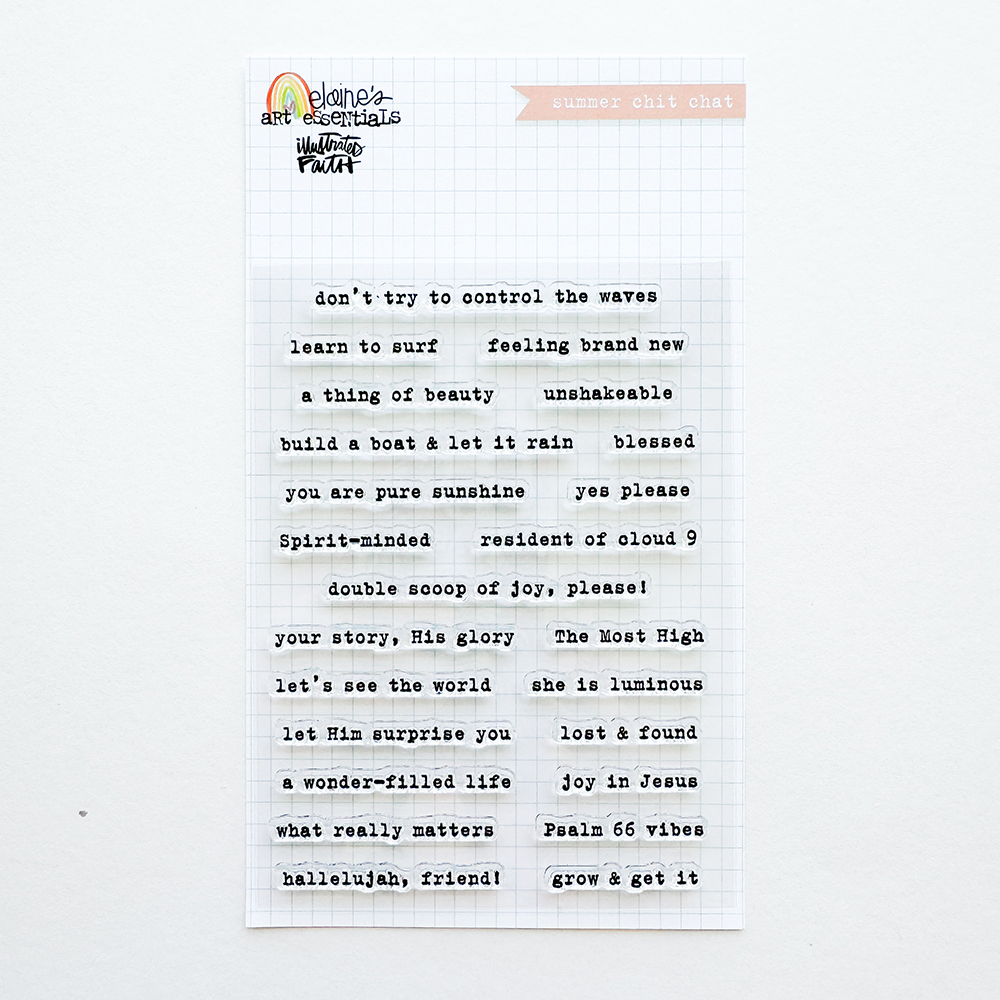 elaine's
aRt esseNtiaLs
illustrated
FaitH
summer chit chat
don't try to control the waves
learn to surf feeling brand new
a thing of beauty unshakeable
build a boat & let it rain blessed
you are pure sunshine yes please
Spirit-minded resident of cloud 9
double scoop of joy, please!
your story, His glory The Most High
let's see the world she is luminous
let Him surprise you lost & found
a wonder-filled life joy in Jesus
what really matters Psalm 66 vibes
hallelujah, friend! grow & get it